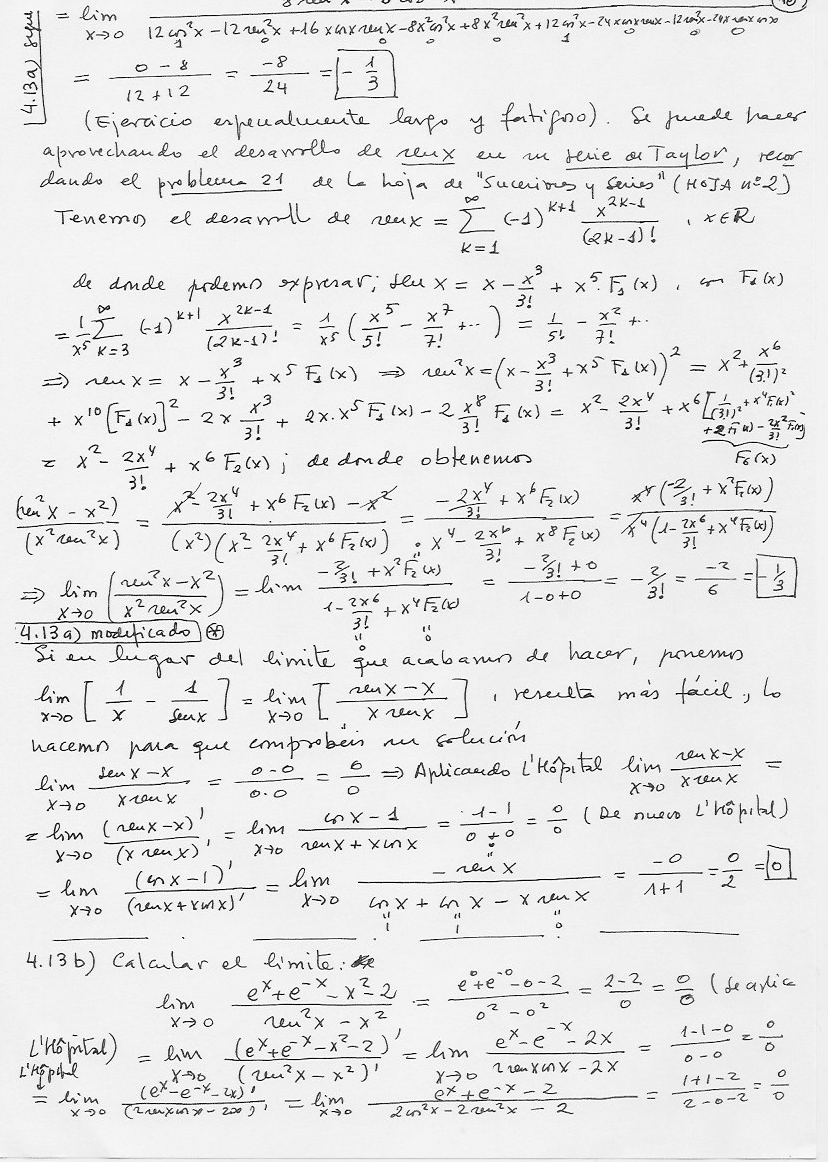 4.13a) sigue
= lim x→0 12cos²x - 12sen²x + 16xcosxsenx - 8x²cos²x + 8x²sen²x + 12cos²x - 24xcosxsenx - 12sen²x - 24x senx cosx
1 0 0 0 0 1 0 0 0
= (0-8)/(12+12) = -8/24 = -1/3
(Ejercicio especialmente largo y fatigoso). Se puede hacer
aprovechando el desarrollo de senx en su serie de Taylor, recor
dando el problema 21 de la hoja de "Sucesiones y series" (HOJA nº2)
Tenemos el desarroll de senx = ∑_{k=1}^{∞} (-1)^{k+1} x^{2k-1}/(2k-1)! , x∈R
de donde podemos expresar; sen x = x - x³/3! + x⁵·F₁(x), con F₁(x)
= 1/x⁵ ∑_{k=3}^{∞} (-1)^{k+1} x^{2k-1}/(2k-1)! = 1/x⁵ (x⁵/5! - x⁷/7! + ...) = 1/5! - x²/7! + ...
⇒ senx = x - x³/3! + x⁵F₁(x) ⇒ sen²x = (x - x³/3! + x⁵F₁(x))² = x² + x⁶/(3!)²
+ x¹⁰[F₁(x)]² - 2x x³/3! + 2x·x⁵F₁(x) - 2 x⁸/3! F₁(x) = x² - 2x⁴/3! + x⁶[1/(3!)² + x⁴F₁(x)²
+ 2F₁(x) - 2x²/3! F₁(x)]
= x² - 2x⁴/3! + x⁶F₂(x); de donde obtenemos
(sen²x - x²)/(x²sen²x) = (x² - 2x⁴/3! + x⁶F₂(x) - x²)/((x²)(x² - 2x⁴/3! + x⁶F₂(x))) = (-2x⁴/3! + x⁶F₂(x))/(x⁴ - 2x⁶/3! + x⁸F₂(x)) = x⁴(-2/3! + x²F₂(x))/(x⁴(1 - 2x⁶/3! + x⁴F₂(x)))
⇒ lim x→0 ((sen²x - x²)/(x²sen²x)) = lim (-2/3! + x²F₂(x))/(1 - 2x⁶/3! + x⁴F₂(x)) = (-2/3! + 0)/(1-0+0) = -2/3! = -2/6 = -1/3
0 0
4.13a) modificado ⊛
Si en lugar del limite que acabamos de hacer, ponemos
lim x→0 [1/x - 1/senx] = lim x→0 [(senx - x)/(x senx)], resulta más fácil, lo
hacemos para que comprobéis su solución
lim x→0 (senx - x)/(x senx) = (0-0)/(0·0) = 0/0 ⇒ Aplicando L'Hôpital lim x→0 (senx - x)/(x senx) =
= lim x→0 (senx - x)'/(x senx)' = lim x→0 (cosx - 1)/(senx + xcosx) = (1-1)/(0+0) = 0/0 (De nuevo L'Hôpital)
= lim x→0 (cosx - 1)'/(senx + xcosx)' = lim x→0 (-senx)/(cosx + cosx - x senx) = -0/(1+1) = 0/2 = 0
1 1 0
4.13b) Calcular el limite:
lim x→0 (eˣ + e⁻ˣ - x² - 2)/(sen²x - x²) = (e⁰ + e⁻⁰ - 0 - 2)/(0² - 0²) = (2-2)/0 = 0/0 (Se aplica
L'Hôpital) = lim x→0 (eˣ + e⁻ˣ - x² - 2)'/(sen²x - x²)' = lim x→0 (eˣ - e⁻ˣ - 2x)/(2senxcosx - 2x) = (1-1-0)/(0-0) = 0/0
L'Hôpital
= lim x→0 (eˣ - e⁻ˣ - 2x)'/(2senxcosx - 2x)' = lim x→0 (eˣ + e⁻ˣ - 2)/(2cos²x - 2sen²x - 2) = (1+1-2)/(2-0-2) = 0/0